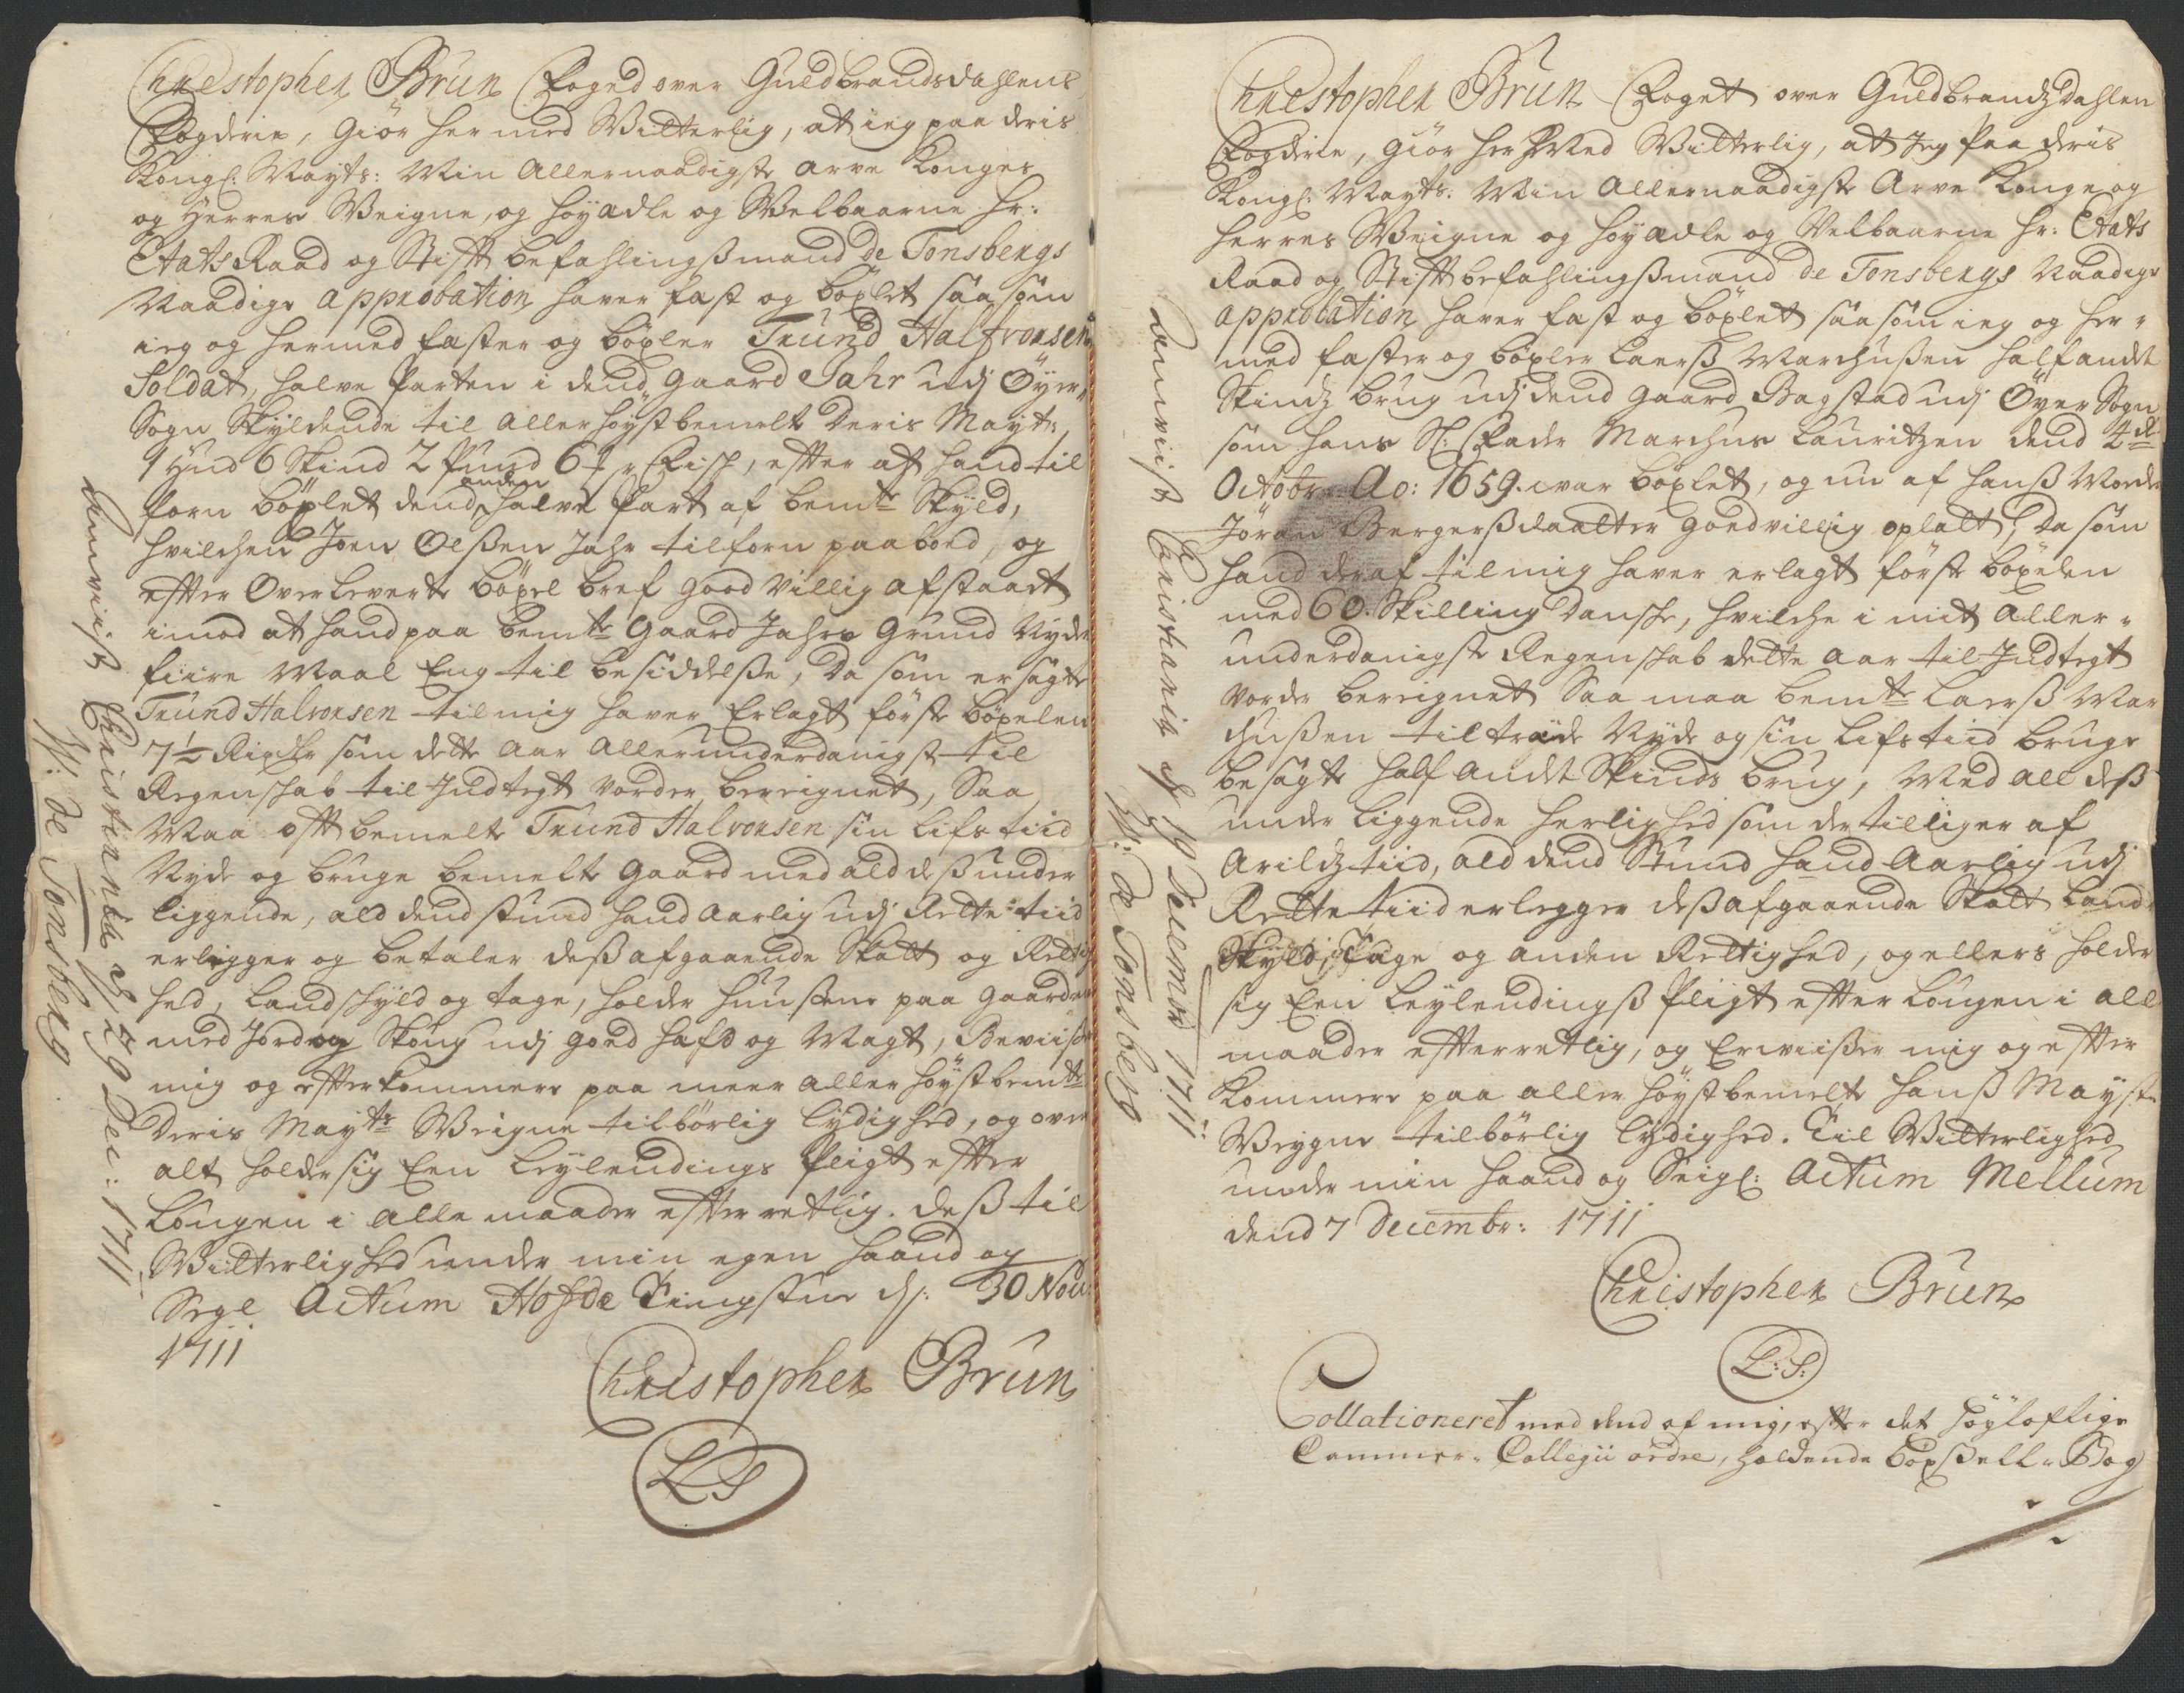 Christopher Brun Foged over Guldbrandsdahlens
Fogderie, Giör her med Witterlig, at ieg paa deris
Kongl: Mayts: Min Allernaadigste Arve Konges
og Herres Weigne, og höyædle og Welbaarne Hr:
EtatsRaad og Stiftbefahlingßmand de Tonsbergs
Naadige approbation haver fæst og böxlet saasom
ieg og hermed fæster og böxler Trund Halfvorsen
Soldat, halve Parten i dend Gaard Jahr udj Öyer
Sogn Skyldende til Allerhöystbemelte Deris Mayt:
1 Hud 6 Skind 2 Pund 6 Fisch, efter at hand til
forn böxlet dend anden halve Part af bemte Skyld,
hvilchen Joen Olßen Jahr tilforn paaboed, og
efter Overleverte böxel bref good villig afstaaet
imod at hand paa bemte Gaard Jahrs Grund Nyder
fiire Maal Eng til besiddelße, Da som ersagte
Trund Halvorsen til mig haver Erlagt förste böxelen
7½ Rixdlr som dette Aar Allerunderdanigst til
Regenschab til Indtegt vorder bereignet, Saa
Maa oftbemelte Trund Halvorsen sin Lifs tiid
Nyde og bruge bemelte Gaard med ald deß under
liggende, ald dend stund hand Aarlig udj Rette tiid
erlegger og betaler deß afgaaende Skatt og Rettig
hed, Landschyld og tage, holder Huußene paa Gaarden
med Jord og Skoug udj goed hæfd og Magt, Beviißer
mig og efterkommere paa meer allerhöystbemte
Deris Mayts Weigne tilbörlig Lydighed, og over
alt holder sig Een Leylendings Pligt efter
Lougen i Alle maader efterretlig. Deß til
Witterlighed under min egen haand og
Segl Actum Hofde Tingstue d: 30 Nov:
1711
Christopher Brun
LS
Anviist Christiania d 29 Dec: 1711
W: de Tonsberg
Christopher Brun Foget over Guldbrandzdahlen
Fogderie, Giör her Med Witterlig, at Jeg Paa deris
Kongl: Mayts: Min Allernaadigste Arve Konge og
Herres Weigne og höyædle og Velbaarne Hr: Etats
Raad og Stiftbefahlingßmand de Tonsbergs Naadige
approbation haver fæst og böxlet saasom ieg og her
med fæster og böxler Laerß Marchußen halfandet
Skindz brug udj dend Gaard Bagstad udj Över Sogn
som hans Sl: Fader Marchus Lauritzen dend 4de
Octobr Ao: 1659. var böxlet, og nu af hanß Moder
Jöran Bergersdaatter goedvillig oplatt, Da som
hand deraf til mig haver erlagt förste böxelen
med 60 Skilling Dansche, hvilche i mit Aller
underdanigste Regenschab dette Aar til Indtegt
vorder bereignet Saa maa bemte Laerß Mar
chußen tiltræde Nyde og sin lifstiid bruge
besagte half andet Skinds brug, Med all deß
under liggende herlighed som der tilliger af
Arildz tiid, ald dend Stund hand Aarlig udj
Rette tiid erlegger deß afgaaende Skatt Land
Skyld, Tage og anden Rettighed, og ellers holder
sig Een Leylendingß Pligt efter Lougen i all
maader efterretlig, og Erviißer mig og efter
kommere paa aller höystbemelte Hanß Mayts
Weigne tilbörlig Lydighed. Til Witterlighed
under min haand og Seigl: Actum Mellum
dend 7 Decembr: 1711
Christopher Brun
L:S:
Collationeret med dend af mig, efter det höyloflige
Cammer-Collegii ordre, holdende böxßell-Bog
Anviist Christiania d 29 Decembr 1711
W: de Tonsberg